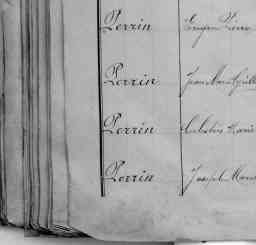 Perrin Eugène Pierre
Perrin Jean Marie
Perrin Célestin Marie
Perrin Joseph Marie